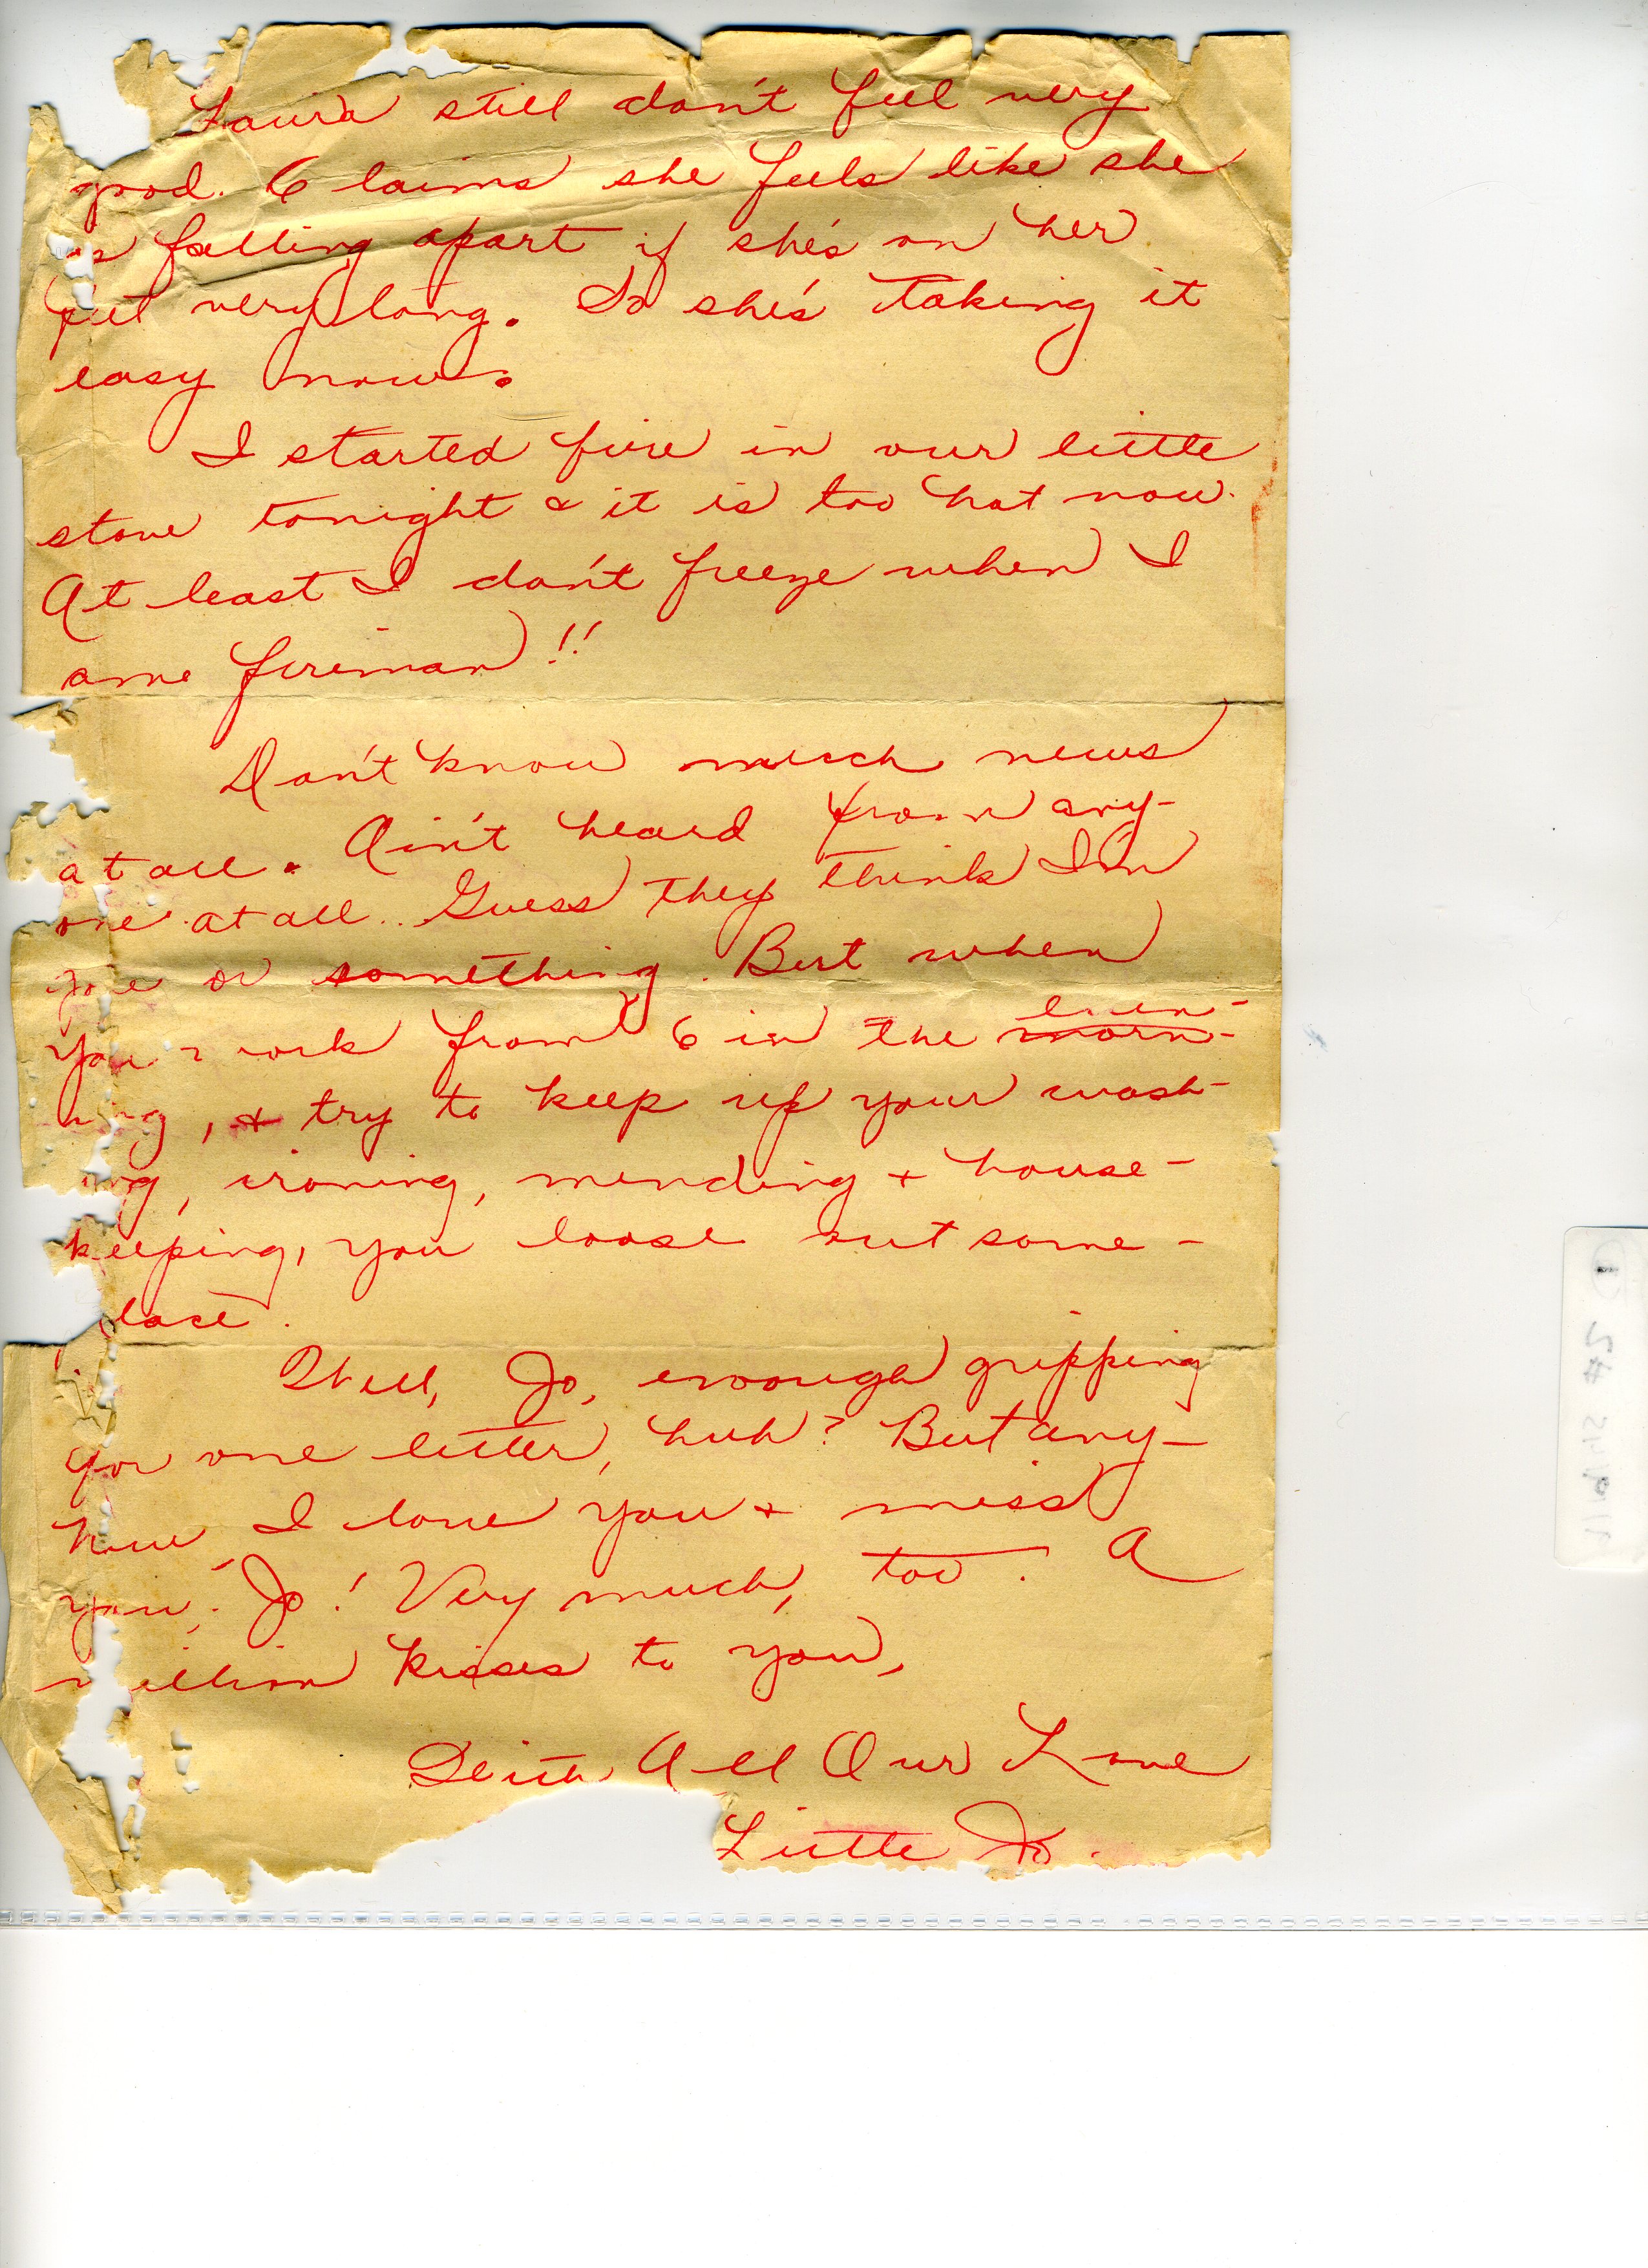 Laura still don't feel very
good. Claims she feels like she
is falling apart if she's on her
feet very long. So she's taking it
easy now.
I started fire in our little
stove tonight & it is too hot now.
At least I don't freeze when I
ame fireman!!
Don't know much news
at all. Ain't heard from any-
one at all.. Guess they think I'm
gone or something. But when
you work from 6 in the morn- even-
ning, & try to keep up your wash-
ing, ironing, mending & house-
keeping, you loose out some-
lace.
Well, Jo, enough gripping
for one letter, huh? But any-
how I love you & miss
you, Jo! Very much, too. A
million kisses to you,
With All Our Love
Little Jo.